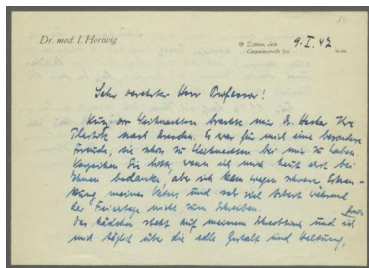 Dr. med. I. Hertwig
9. I. 42
Sehr verehrter Herr Professor!
Kurz vor Weihnachten brachte mir Dr. Ihre
Plastik nach Dresden. Es war für mich eine besondere
Freude, sie schon zu Weihnachten bei mir zu haben.
Verzeihen Sie bitte, wenn ich mich heut erst bei
Ihnen bedanke, aber ich kam wegen schwerer Erkran-
kung meines Vaters und sehr viel Arbeit während
der Feiertage nicht zum Schreiben.
Das Mädchen steht auf meinem Schreibtisch und ich
mich täglich über die edle Gestalt und Haltung,